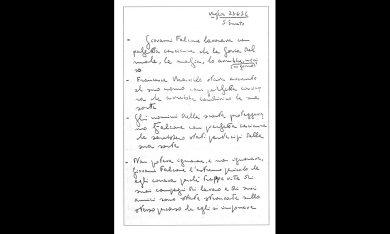 - Giovanni Falcone lavorava con
perfetta coscienza che la forza del
male, la mafia, lo avrebbe un giorno
- Francesca Morvillo stava accanto
al suo uomo con perfetta coscien
za che avrebbe condiviso la sua
sorte
- Gli uomini della scorta proteggeva
no Falcone con perfetta coscienza
che sarebbero stati partecipi della
sua sorte
- Non poteva ignorare, e non ignorava,
Giovanni Falcone l'estremo pericolo che
egli correva perché troppe vite di
suoi compagni di lavoro e di suoi
amici sono state stroncate sullo
stesso percorso che egli si imponeva